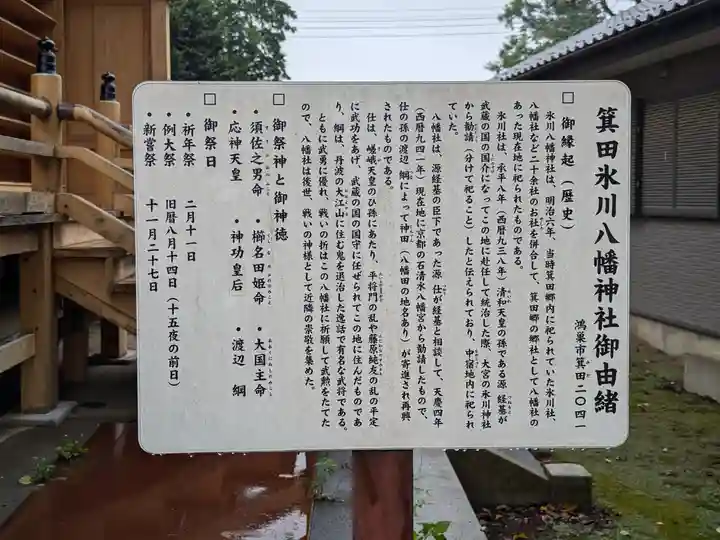 箕田氷川八幡神社御由緒
鴻巣市箕田二〇四一
□ 御縁起（歴史）
氷川八幡神社は、明治六年、当時箕田郷内に祀られていた氷川社、
八幡社など二十余社のお社を併合して、箕田郷の郷社として八幡社の
あった現在地に祀られたものである。
氷川社は、承平八年（西暦九三八年）清和天皇の孫である源 経基が
武蔵の国の国介になってこの地に赴任して統治した際、大宮の氷川神社
から勧請（分けて祀ること）したと伝えられており、中宿地内に祀られ
ていた。
八幡社は、源経基の臣下であった源 仕が経基と相談して、天慶四年
（西暦九四一年）現在地に京都の石清水八幡宮から勧請したもので、
仕の孫の渡辺 綱によって神田（八幡田の地名あり）が寄進され再興
されたものである。
仕は、嵯峨天皇のひ孫にあたり、平将門の乱や藤原純友の乱の平定
に武功をあげ、武蔵の国の国守に任ぜられてこの地に住んだものであ
り、綱は、丹波の大江山に住む鬼を退治した逸話で有名な武将である。
ともに武勇に優れ、戦いの折はこの八幡社に祈願して武勲をたてた
ので、八幡社は後世、戦いの神様として近隣の崇敬を集めた。
□ 御祭神と御神徳
・須佐之男命 ・櫛名田姫命 ・大国主命
・応神天皇 ・神功皇后 ・渡辺 綱
□ 御祭日
・祈年祭 二月十一日
・例大祭 旧暦八月十四日（十五夜の前日）
・新嘗祭 十一月二十七日